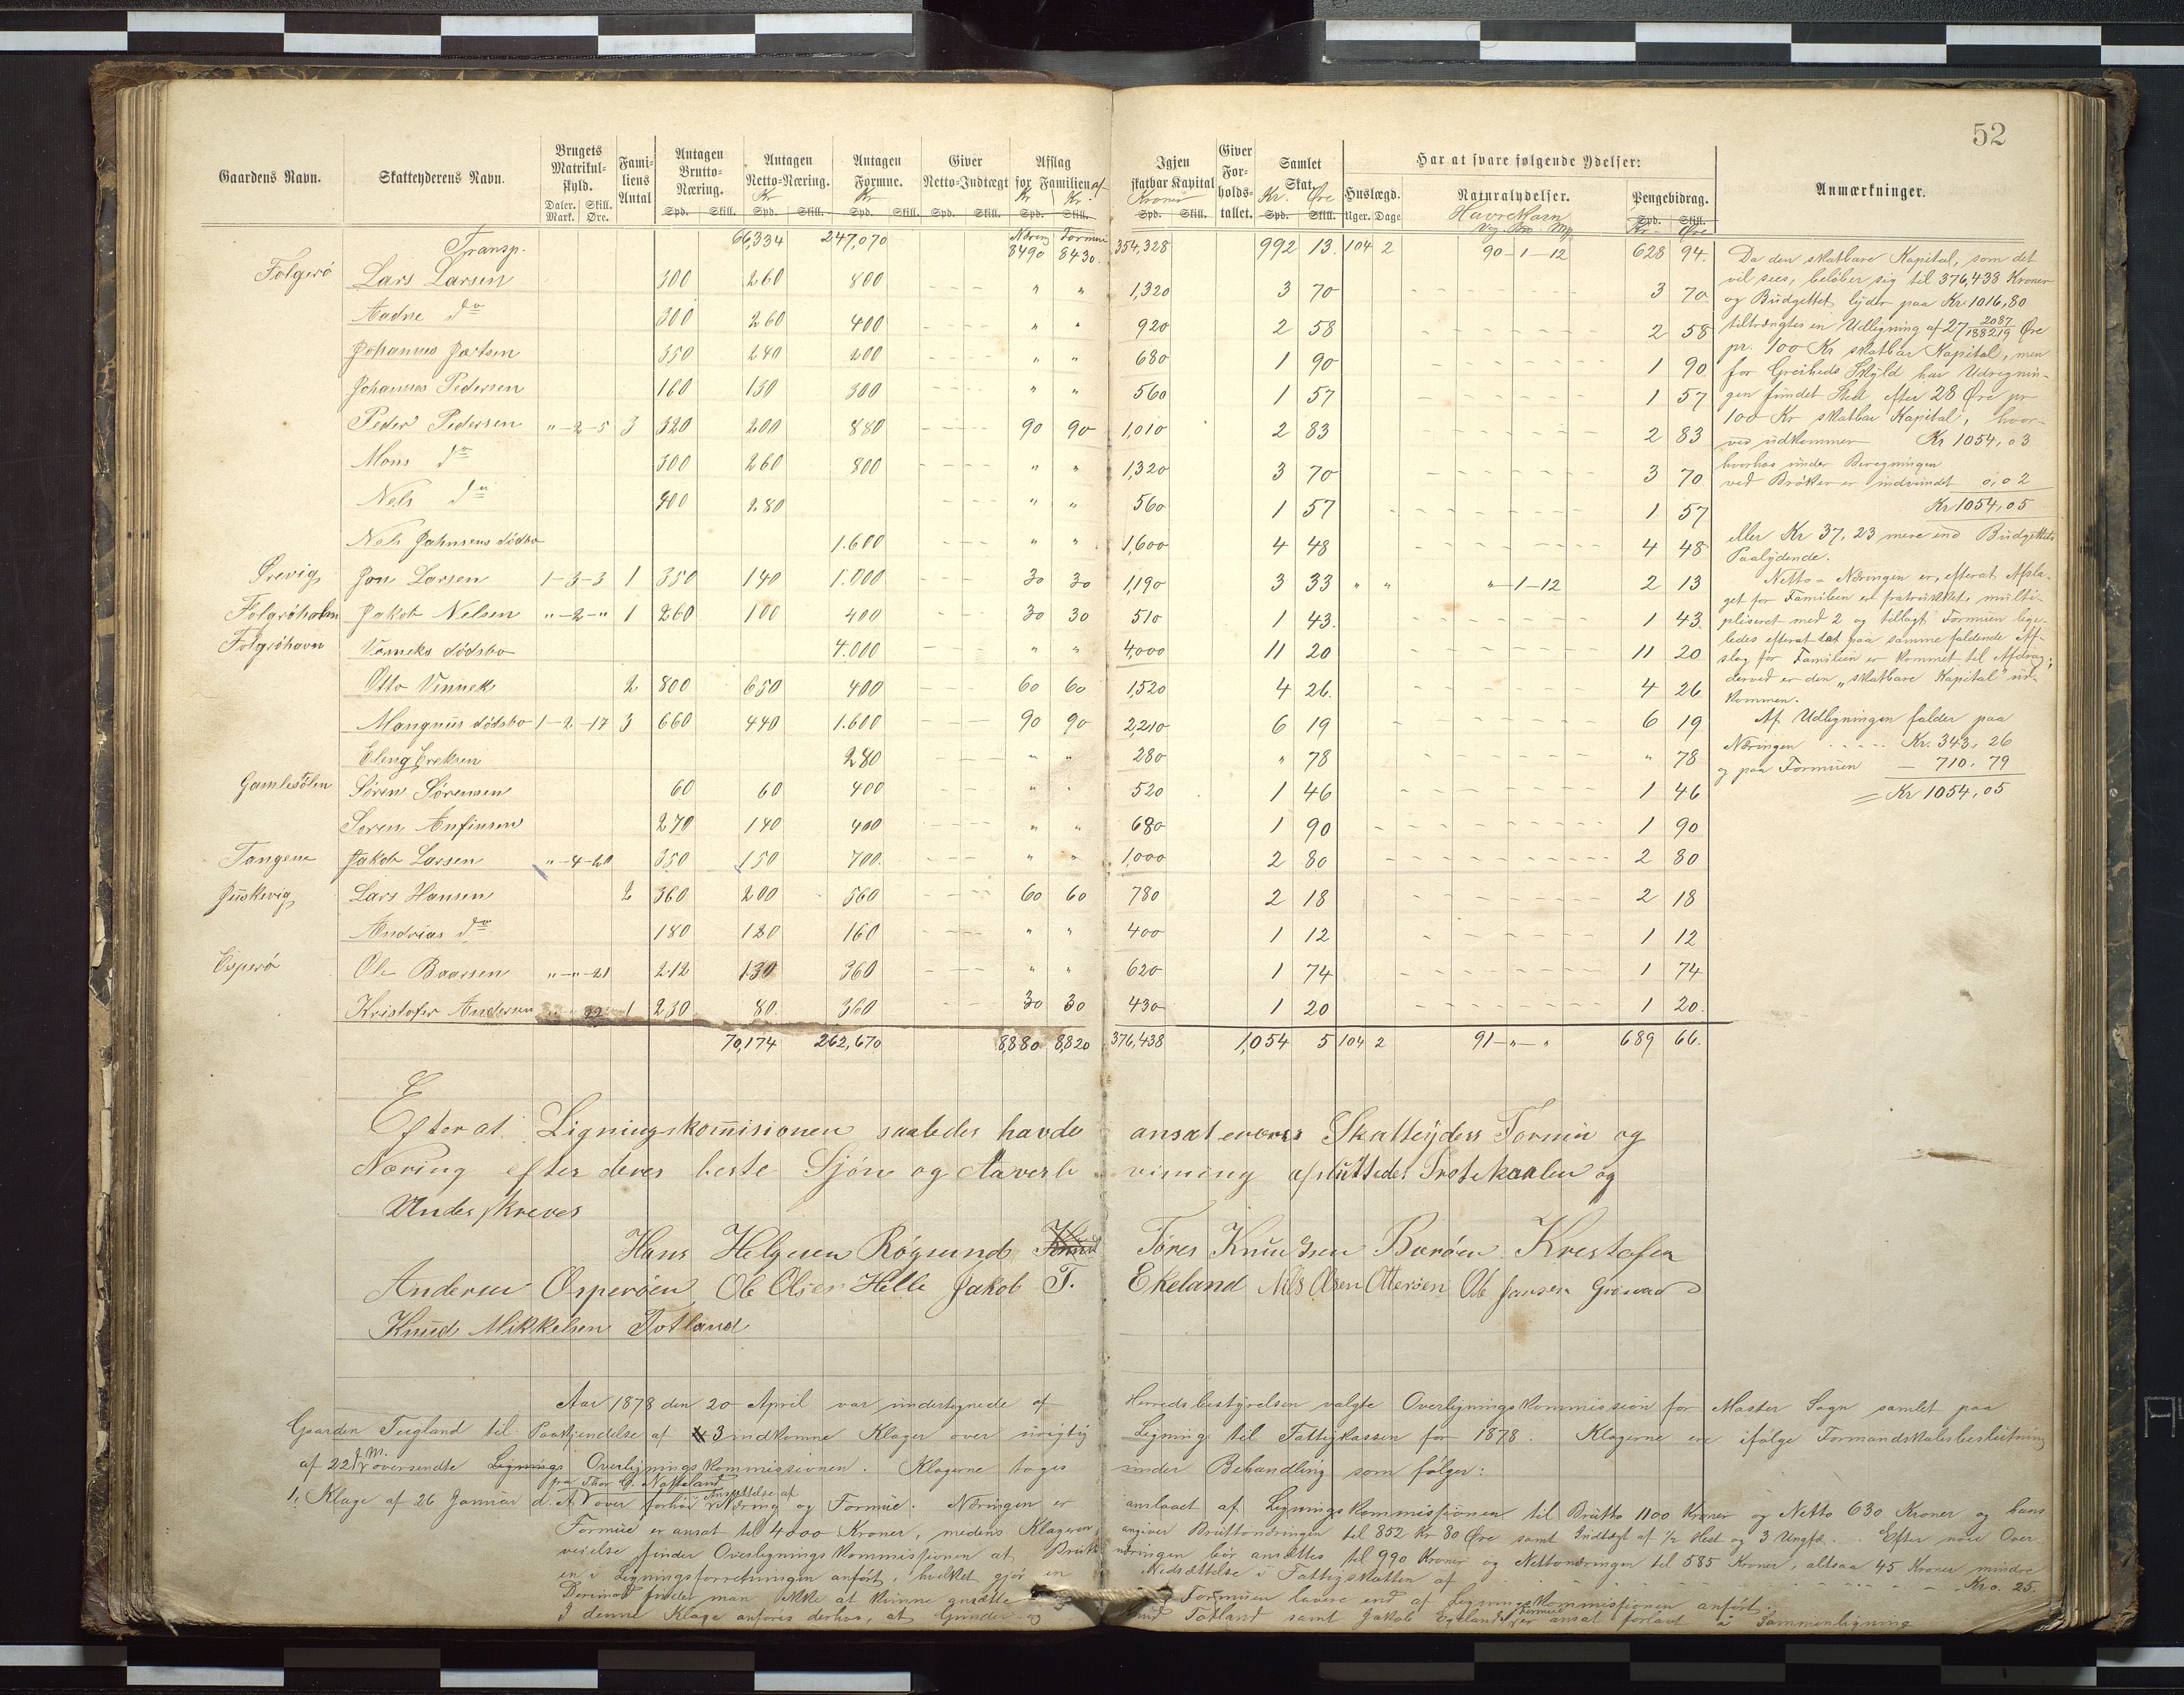 52
Gaardens Navn. Skatteyderens Navn. Brugets Matrikul-skyld. Fami-liens Antal Antagen Brutto-Næring. Antagen Netto-Næring. Antagen Formue. Giver Netto-Indtægt Afslag for Familien af Igjen skatbar Kapital Giver For-holds-tallet. Samlet Skat. Har at svare følgende Ydelser: Anmærkninger.
Huslægd. Naturalydelser. Pengebidrag.
Daler. Mark. Skill. Øre. Spd. Skill. Kr Spd. Skill. Kr Spd. Skill. Spd. Skill. Kr Kr. Skill. Kroner Spd. Skill. Kr. Øre Spd. Skill. Uger. Dage Havrekorn Vog Spd. Skill. Kr. Øre
Transp. 66,334 247,070 Næring 8490 Formue 8430. 354,328 992 13. 104 2 90-1-12 628 94.
Folgerö Lars Larsen 300 260 800 - - - " " 1,320 3 70 - - - 3 70
Aadne do 300 260 400 - - - " " 920 2 58 - - - 2 58
Johannes Jartsen 350 240 200 - - - " " 680 1 90 - - - 1 90
Johannes Pedersen 160 130 300 - - - " " 560 1 57 - - - 1 57
Peder Pedersen "-2-5 3 320 200 880 90 90 1,010 2 83 - - - 2 83
Mons do 300 260 800 - - - " " 1,320 3 70 - - - 3 70
Nels do 400 280 - - - " " 560 1 57 - - - 1 57
Nels Johnsens dödsbo 1.600 - - - " " 1,600 4 48 - - - 4 48
Ørevig Jon Larsen 1-3-3 1 350 140 1.000 - - - 30 30 1,190 3 33 " " "-1-12 2 13
Folgröholm Jakob Nelsen "-2-" 1 260 100 400 - - 30 30 510 1 43. - - - 1 43
Folgröhavn Vömeks dödsbo 4.000 " " 4,000 11 20 - - - 11 20
Otto Vinnek 2 800 650 400 - - - 60 60 1,520 4 26. - - - 4 26
Mangnus dödsbo 1-2-17 3 660 440 1.600 - - - 90 90 2,210 6 19 - - - 6 19
Eleng Ereksen 280 - - - " " 280 " 78 - - - " 78
Gamlestölen Sören Sörensen 60 60 400 - - - " " 520 1 46 - - - 1 46
Soren Anfinsen 270 140 400 - - - " " 680 1 90 - - - 1 90
Tangene Jakob Larsen "-4-20 350 150 700. - - - " " 1,000 2 80 - - - 2 80
Juskevig Lars Hansen 2 360 200 560 - - - 60 60 780 2 18 - - - 2 18
Andrias do 180 120 160 - - - " " 400 1 12 - - - 1 12
Osperö Ole Baarsen "-"-21 212 130 360 " " 620 1 74 - - - 1 74
Kristofer Andersen 22 1 230 80 360 - - 30 30 430 1 20 - - - 1 20.
70,174 262,670 8,880 8,820 376,438 1,054 5 104 2 91-"-" 689 66.
Da den skatbare Kapital, som det
vil sees, beløber sig til 376,438 Kroner
og Budgettet lyder paa Kr. 1016,80
tiltrængtes en Udligning af 27 2087/188219 Øre
pr. 100 Kr skatbar Kapital, men
for Greiheds Skyld har Udregnin-
gen fundet Sted efter 28 Øre pr
100 Kr skatbar Kapital, hvor-
ved udkommer Kr 1054,03
hvorhos under Beregningen
ved Brøker er indvundet 0,02
Kr 1054,05
eller Kr 37,23 mere end Budgettets
Paalydende.
Netto-Næringen er, efterat Afsla-
get for Familien er fratrukket, multi-
pliseret med 2 og tillagt Formuen lige-
ledes efterat det paa samme faldende Af-
slag for Familien er kommet til Afdrag;
derved er den „skatbare Kapital" ud-
kommen.
Af Udligningen falder paa
Næringen - - - - Kr. 343,26
og paa Formuen - 710,79
= Kr 1054,05
Efterat Ligningskommisionen saaledes havde ansat enværs Skatteyders Formue og
Næring efter deres beste Sjön og Aaverb viisning afsluttedes Protokoalen og
Underskreves
Hans Helgesen Rögsund Knud Töres Knudsen Buröen Krestofer
Andersen Osperöen Ole Olsen Helle Jakob T. Ekeland Nils Olsen Otteröen Ole Jansen
Knud Mikkelsen Totland
Aar 1878 den 20 April var undertegnede af Herredsbestyrelsen valgte Overligningskommission for Møster Sogn samlet paa
Gaarden Teigland til Paakjendelse af 3 indkomne Klager over urigtig Ligning til Fattigkassen for 1878. Klagerne ere ifølge Formandskabsbeslutning
af 22 f. M. oversendte Lignings Overligningskommissionen. Klagerne toges under Behandling som følger:
1, Klage af 26 Januar d. A. fra Thor O. Nappeland over forhöi Ansættelse af Næring og Formue. Næringen er anslaaet af Ligningskommissionen til Brutto 1100 Kroner og Netto 630 Kroner og hans
Formue er ansat til 4000 Kroner, medens Klageren angiver Bruttonæringen til 852 Kr 80 Øre samt Indtægt af 1/2 Hest og 3 Ungfæ. Efter nöie Over
veielse finder Overligningskommissionen at Brutto næringen bör ansættes til 990 Kroner og Nettonæringen til 585 Kroner, altsaa 45 Kroner mindre
en i Ligningsforretningen anfört, hvilket gjör en Nedsættelse i Fattigskatten af - - - - Kr 0,25.
Derimod finder man ikke at kunne ansætte Formuen lavere end af Ligningskommissionen anfört.
I denne Klage anføres derhos, at Gunder og Knud Totland samt Jakob Egelands Formue er ansat forlavt i Sammenligning